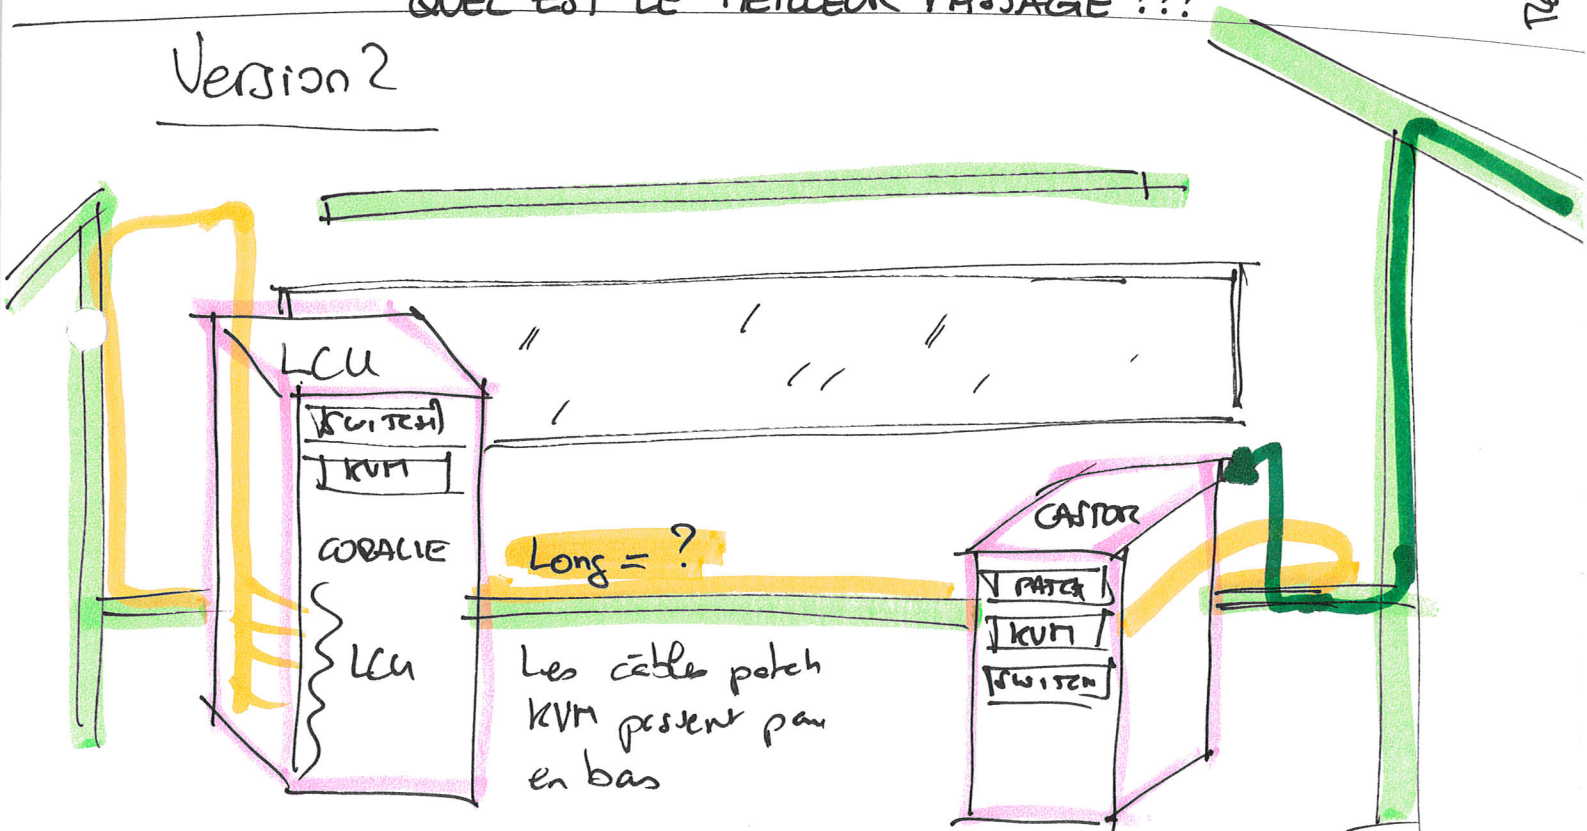 QUEL EST LE MEILLEUR PASSAGE ???
Version 2
LCU
SWITCH
KVM
CORALIE
LCU
Long = ?
Les câbles patch
KVM passent par
en bas
CASTOR
PATCH
KVM
SWITCH